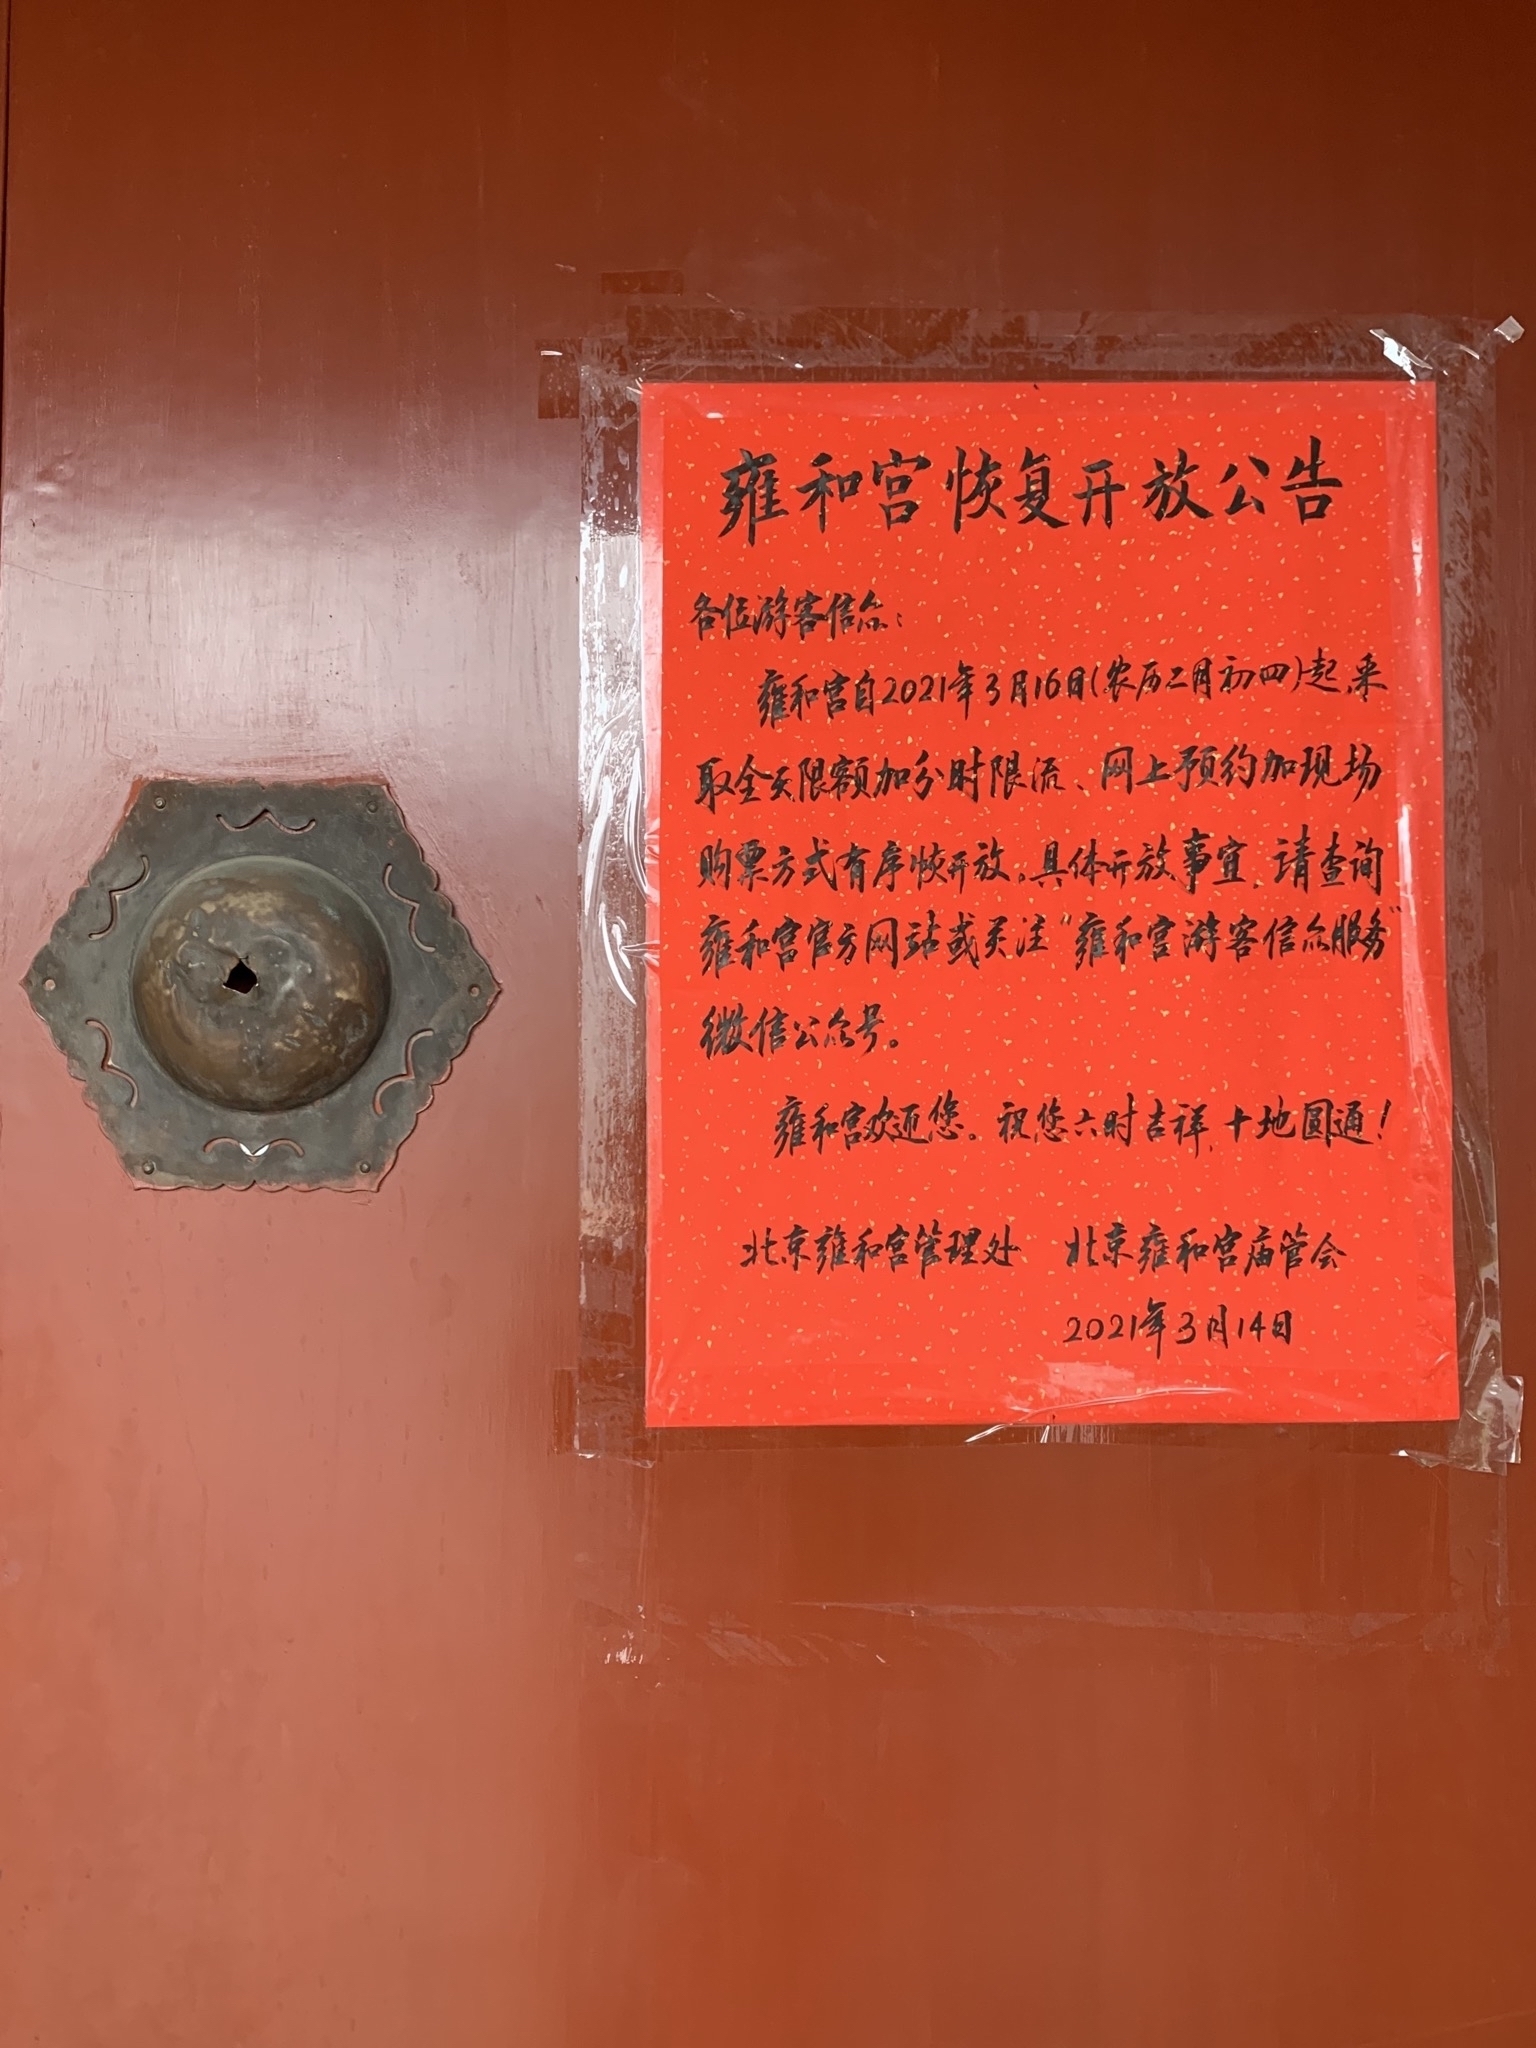 雍和宫恢复开放公告
各位游客信众：
雍和宫自2021年3月16日(农历二月初四)起，采
取全天限额加分时限流、网上预约加现场
购票方式有序恢开放。具体开放事宜，请查询
雍和宫官方网站或关注“雍和宫游客信众服务”
微信公众号。
雍和宫欢迎您。祝您六时吉祥，十地圆通！
北京雍和宫管理处 北京雍和宫庙管会
2021年3月14日